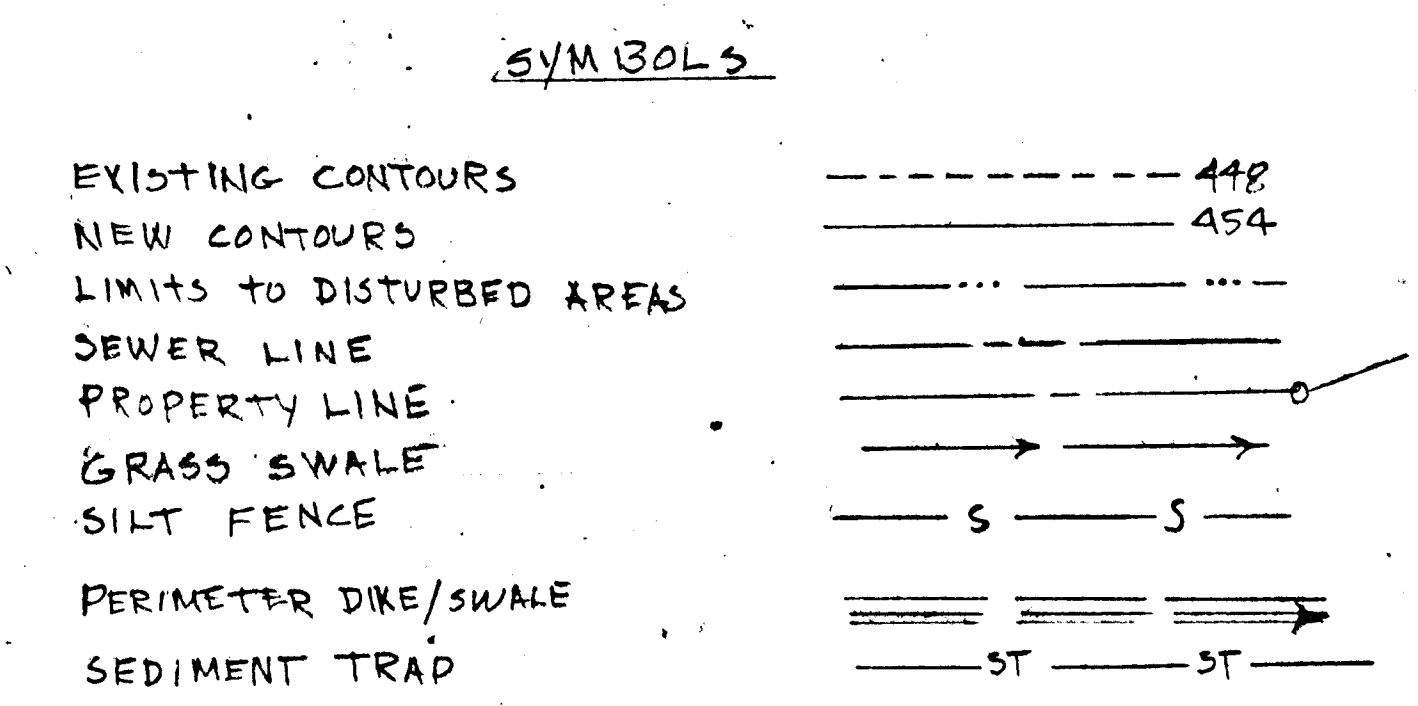 SYMBOLS
EXISTING CONTOURS 448
NEW CONTOURS 454
LIMITS TO DISTURBED AREAS
SEWER LINE
PROPERTY LINE
GRASS SWALE
SILT FENCE S S
PERIMETER DIKE/SWALE
SEDIMENT TRAP ST ST